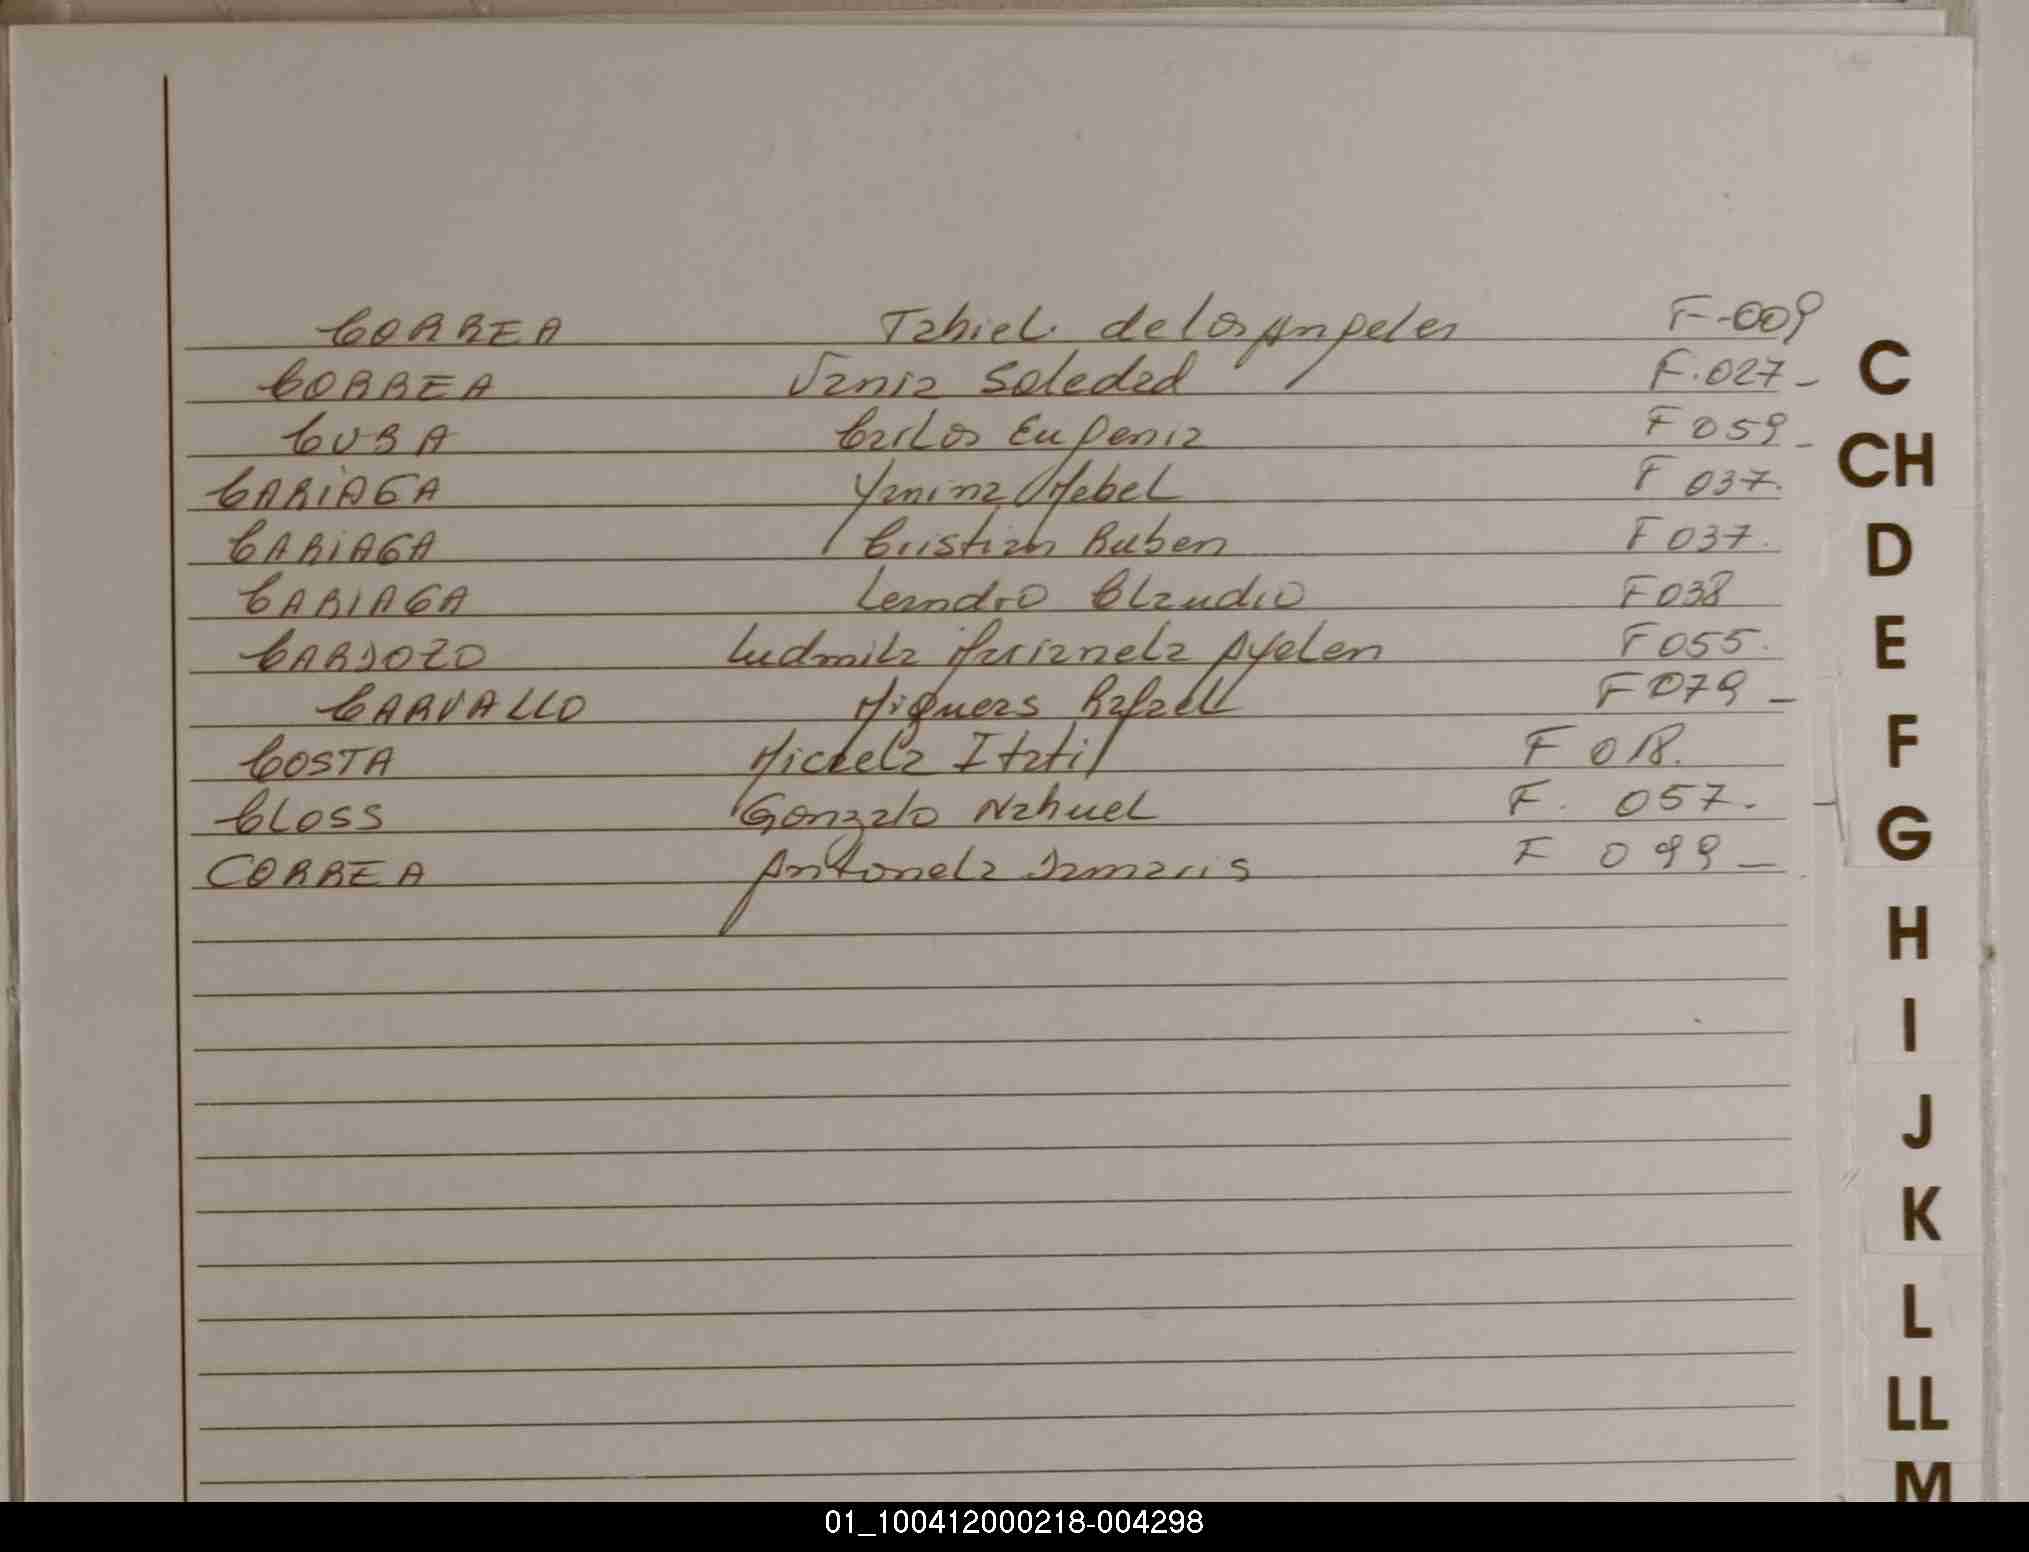 CORREA Tahiel de los Angeles F-009
CORREA Vania Soledad F.027-
CUBA Carlos Eugenia F 059-
CARIAGA Yanina Mabel F 037.
CARIAGA Cristian Ruben F 037.
CARIAGA Leandro Claudio F 038
CARDOZO Ludmila Marianela Ayelen F 055.
CARVALLO Rafael F 079-
COSTA Micaela Itati F 018.
CLOSS Gonzalo Nahuel F. 057.
CORREA Antonela Damaris F 099-
C
CH
D
E
F
G
H
I
J
K
L
LL
M
01_100412000218-004298